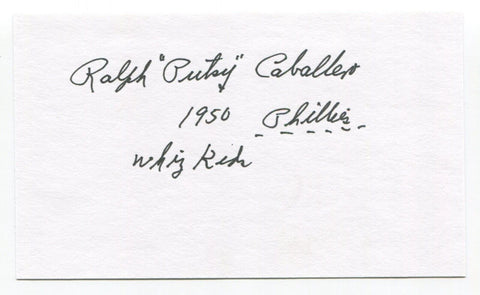 Ralph "Putsy" Caballero
1950 Phillies
Whiz Kids